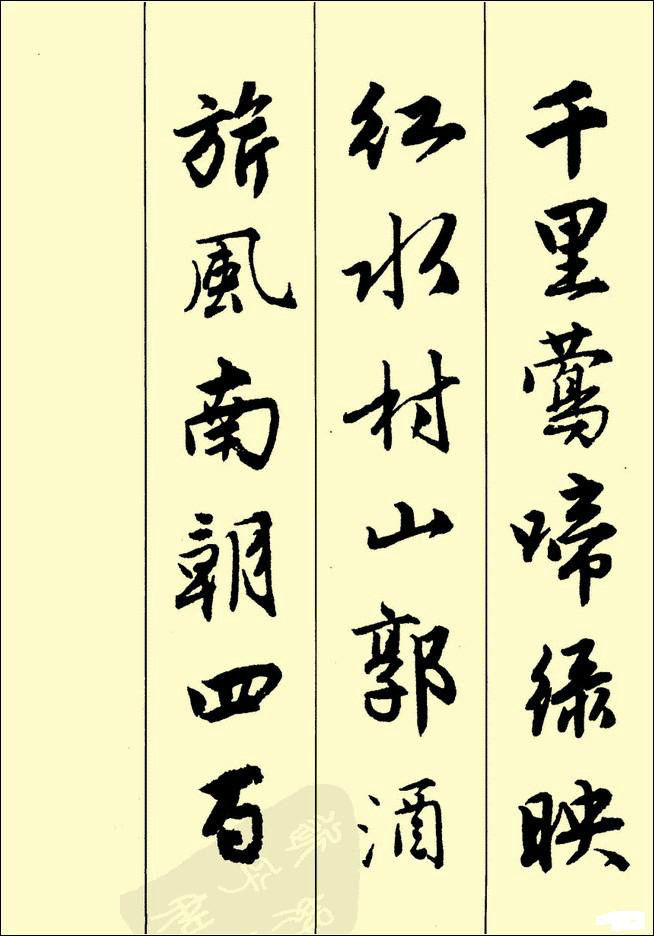 千里鶯啼緑映
紅水村山郭酒
旂風南朝四百